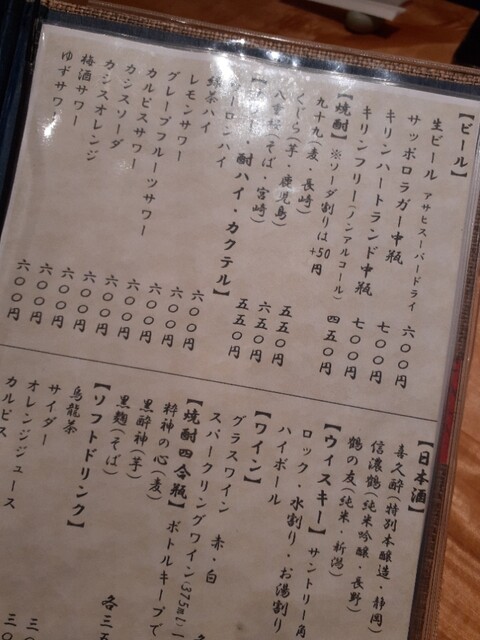 【ビール】
生ビール アサヒスーパードライ 六〇〇円
サッポロラガー中瓶 七〇〇円
キリンハートランド中瓶 七〇〇円
キリンフリー(ノンアルコール) 四五〇円
【焼酎】※ソーダ割りは+50円
九十九(麦・長崎) 五五〇円
くじら(芋・鹿児島) 六五〇円
(そば・宮崎) 五五〇円
酎ハイ・カクテル】
ウーロンハイ
緑茶ハイ
レモンサワー 六〇〇円
グレープフルーツサワー 六〇〇円
カルピスサワー 六〇〇円
カシスソーダ 六〇〇円
カシスオレンジ 六〇〇円
梅酒サワー 六〇〇円
ゆずサワー 六〇〇円
六〇〇円
六〇〇円
【日本酒】
喜久酔(特別本醸造・静岡)
信濃鶴(純米吟醸・長野)
鶴の友(純米・新潟)
【ウィスキー】サントリー角
ロック・水割り・お湯割り
ハイボール
【ワイン】
グラスワイン 赤・白
スパークリングワイン(375ml)
【焼酎四合瓶】ボトルキープで
粋神の心(麦)
黒酔神(芋)
黒麹(そば)
【ソフトドリンク】
烏龍茶
サイダー
オレンジジュース
カルピス